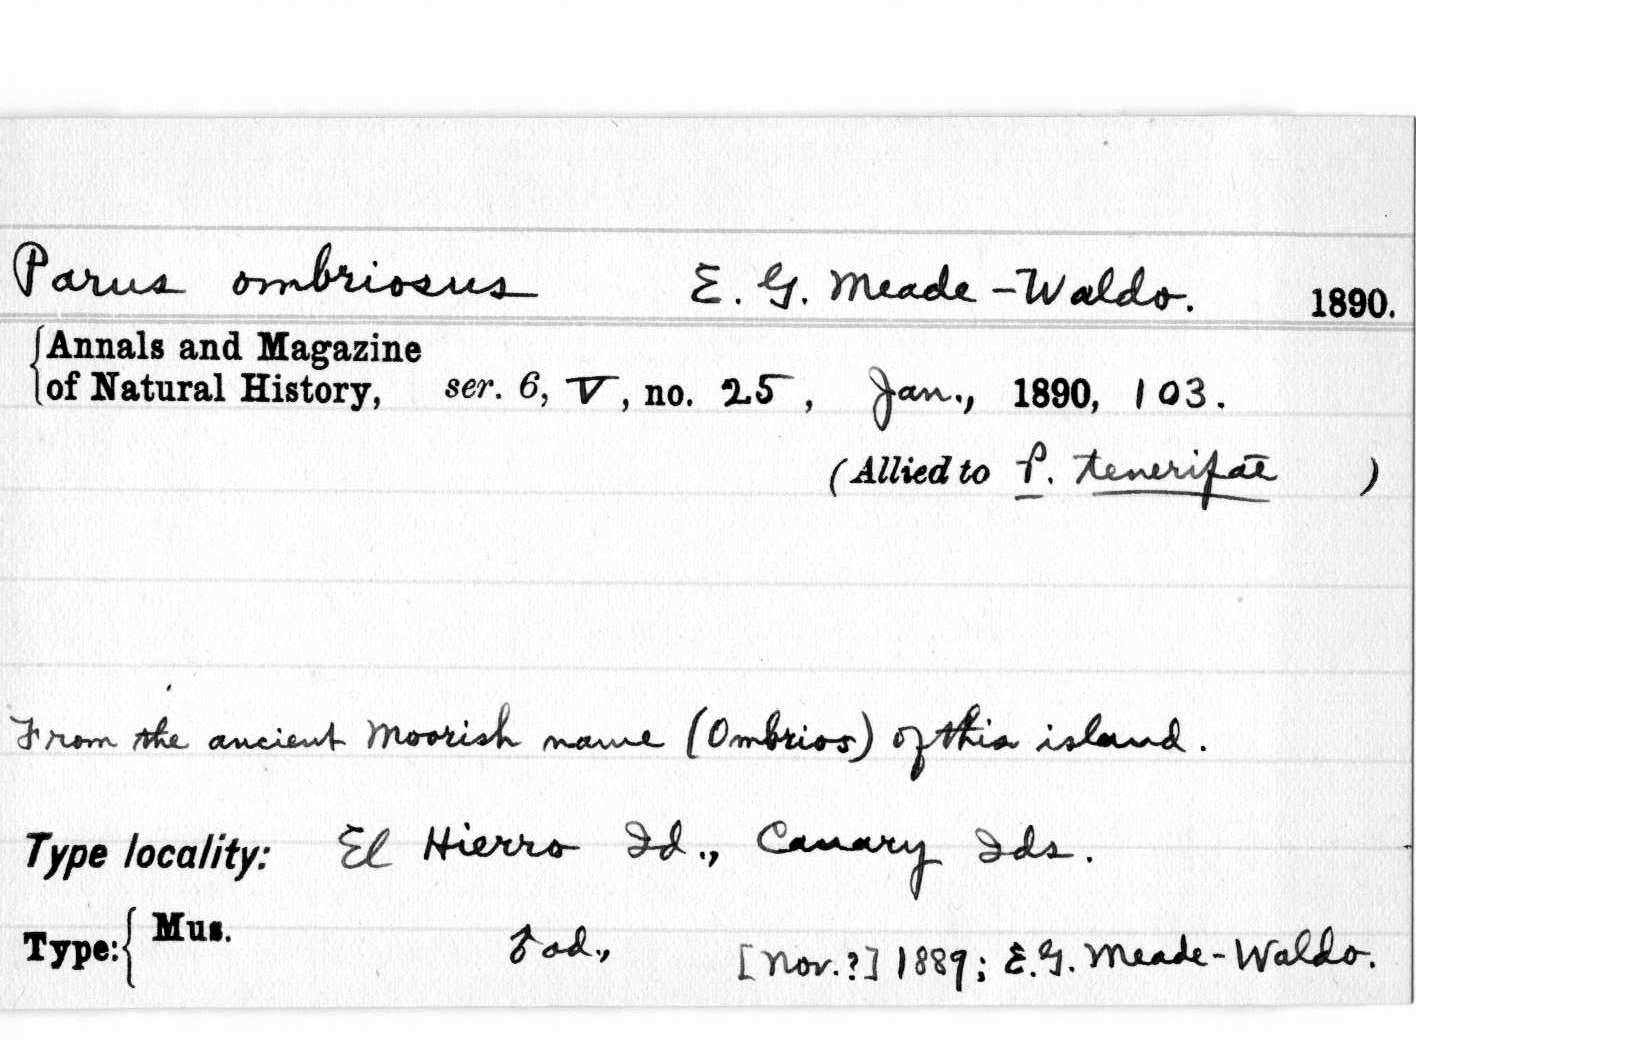 Parus ombriosus E. G. Meade-Waldo. 1890.
Annals and Magazine
of Natural History, ser. 6, V, no. 25, Jan., 1890, 103.
(Allied to P. tenerifae)
From the ancient Moorish name (Ombrios) of this island.
Type locality: El Hierro Id., Canary Ids.
Type: Mus. ♂ ad., [Nov.?] 1889; E.G. Meade-Waldo.